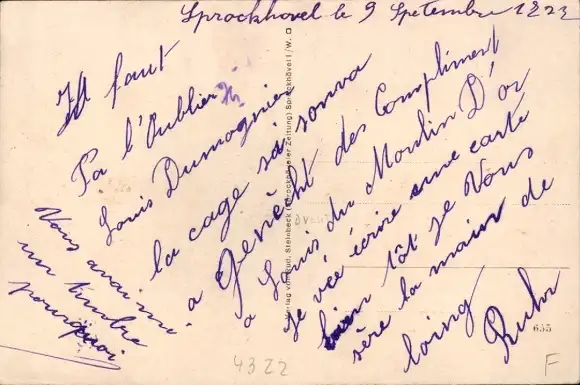 Sprockhovel le 9 Spetembre 1923
Il faut
Pa l'Oublier
Louis Dumagnier
la cage sa sonva
a Genècht des Compliment
a Louis du Moulin D'or
Je véé écrire une carte
bien tôt Je Vous
sère la main de
loing Ruhr
Vous avai mi
un timbre
pourquoi
Verlag von Rud. Steinbeck (Sprockhöveler Zeitung) Sprockhövel i/W.
4322
635
F